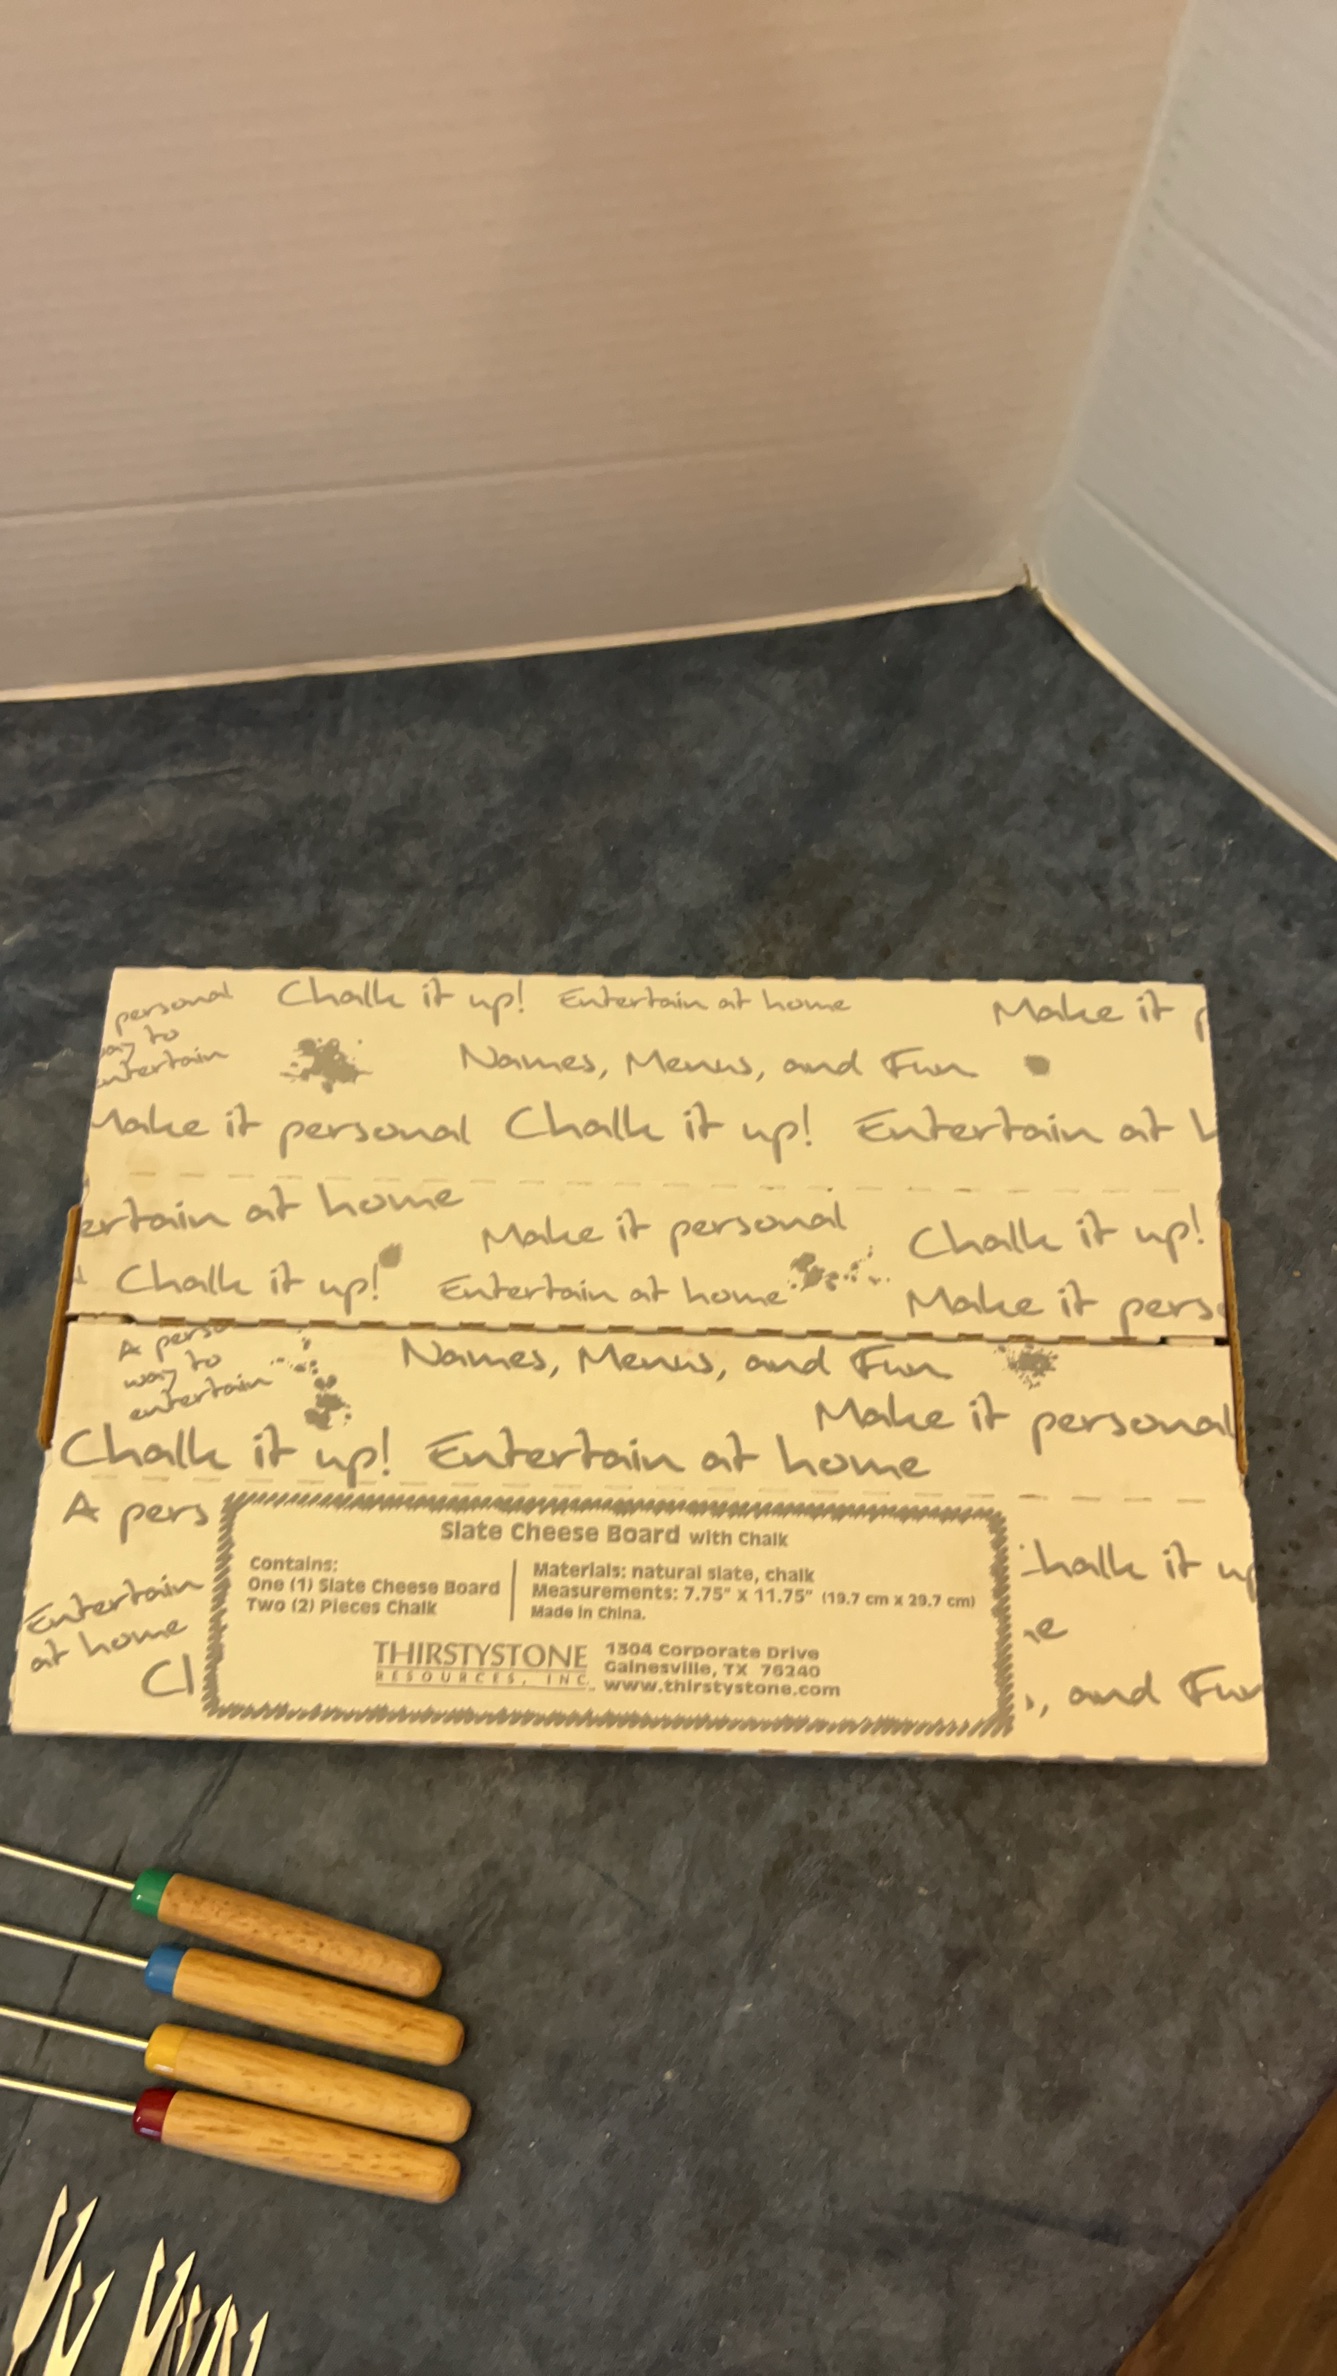 personal Chalk it up! Entertain at home Make it
way to
entertain
Names, Menus, and Fun
Make it personal Chalk it up! Entertain at
ertain at home
Make it personal
Chalk it up!
Chalk it up!
Entertain at home
Make it pers
A perso
way to
entertain
Names, Menus, and Fun
Make it personal
Chalk it up! Entertain at home
A pers
Slate Cheese Board with Chalk
Contains:
One (1) Slate Cheese Board
Two (2) Pieces Chalk
Materials: natural slate, chalk
Measurements: 7.75" X 11.75" (19.7 cm x 29.7 cm)
Made in China.
THIRSTYSTONE
RESOURCES, INC.
1304 Corporate Drive
Gainesville, TX 76240
www.thirstystone.com
Entertain
at home
halk it up
e
, and Fun